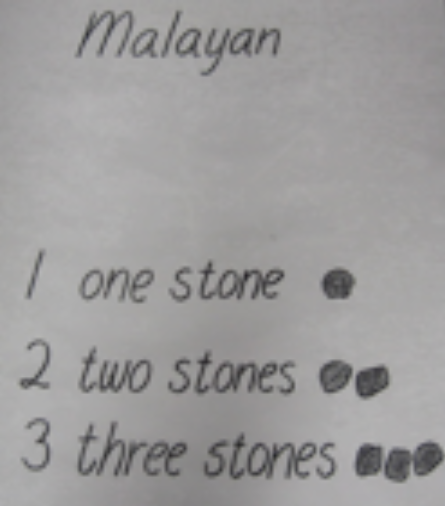 Malayan
1 one stone
2 two stones
3 three stones